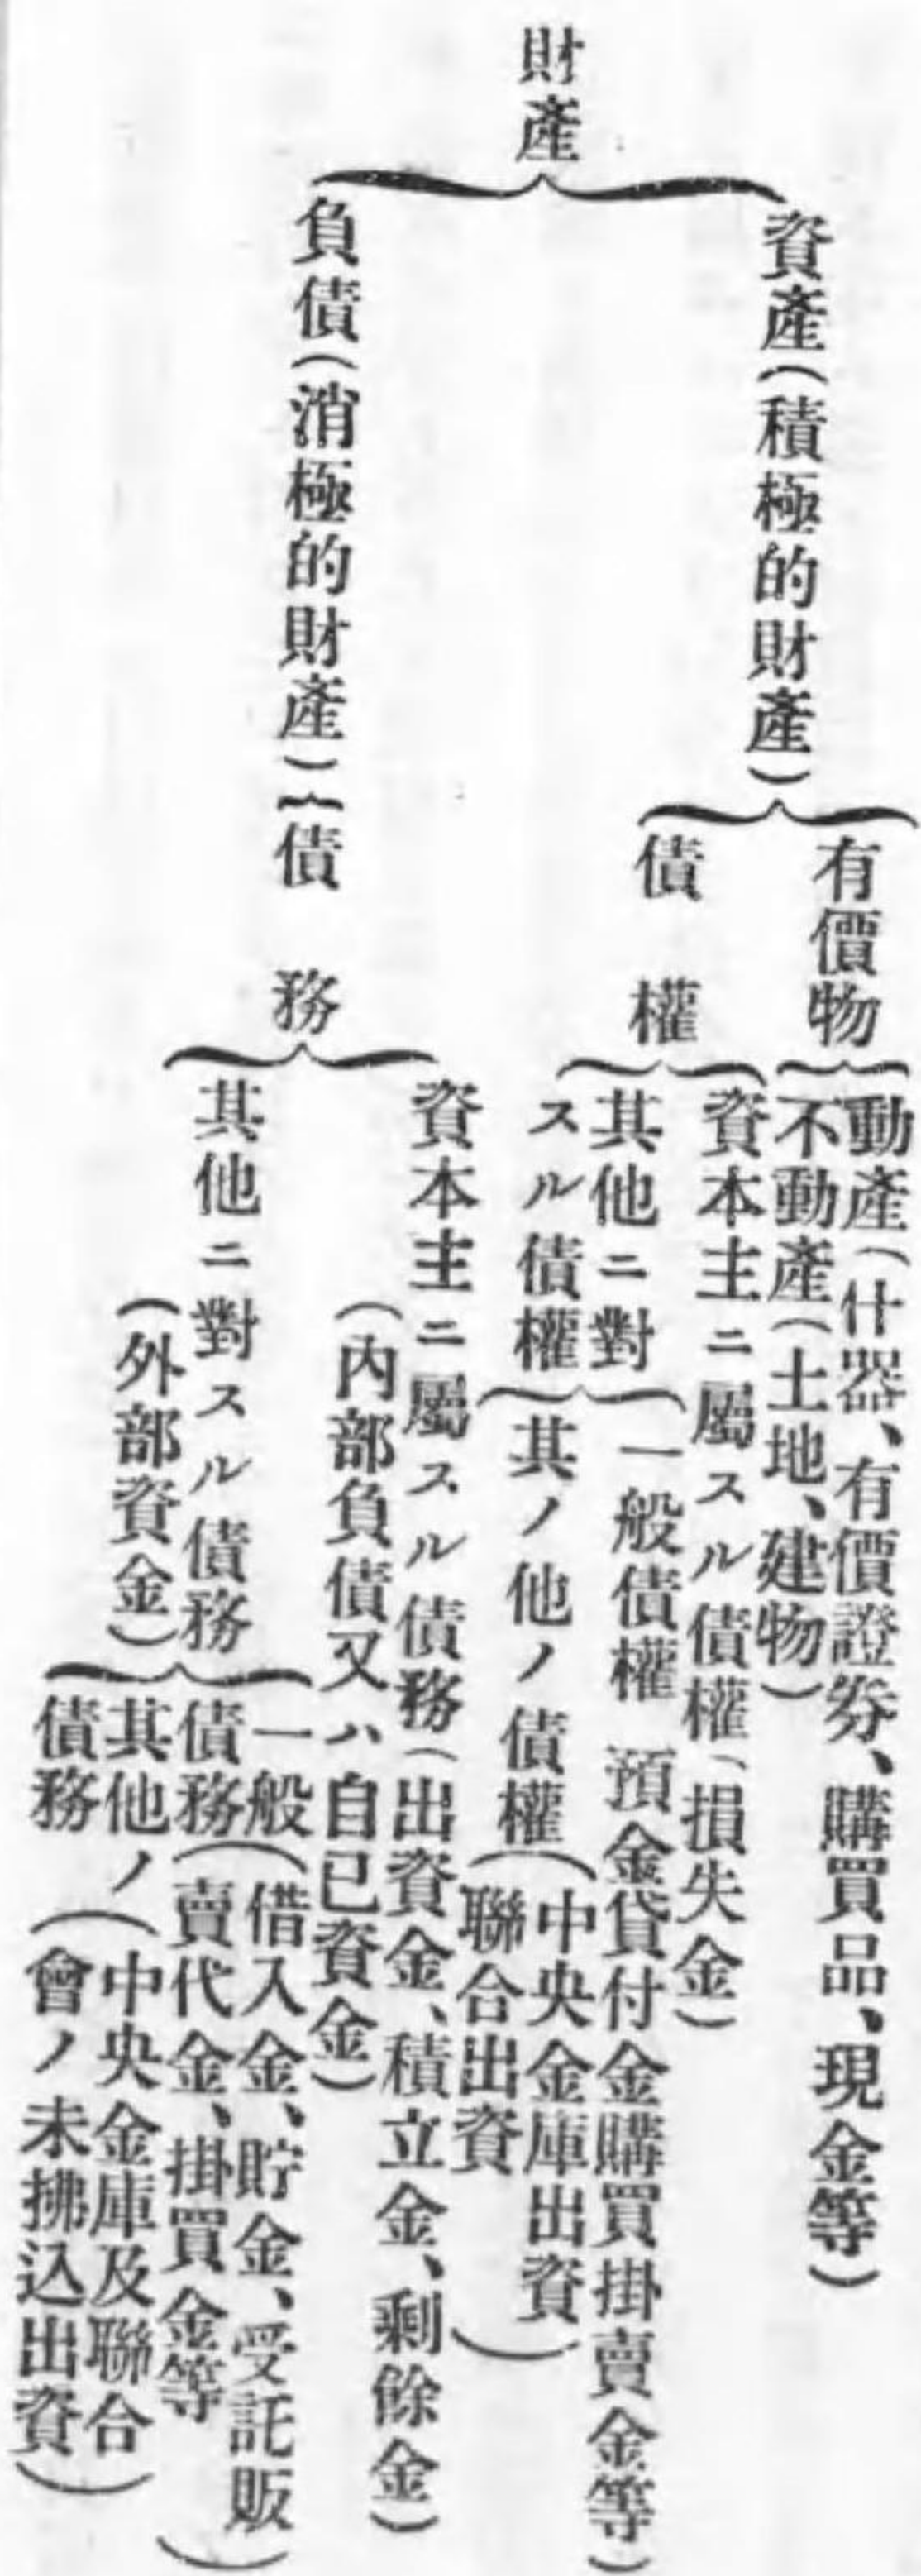 財產
資產(積極的財產)
有價物
動產(什器、有價證券、購買品、現金等)
不動產(土地、建物)
債權
資本主ニ屬スル債權(損失金)
其他ニ對
スル債權
一般債權 預金貸付金購買掛賣金等)
其ノ他ノ債權
(中央金庫出資
聯合出資)
負債(消極的財產)
債務
資本主ニ屬スル債務(出資金、積立金、剩餘金)
(內部負債又ハ自已資金)
其他ニ對スル債務
(外部資金)
一般
債務
(借入金、貯金、受託販
賣代金、掛買金等)
其他ノ
債務
(中央金庫及聯合
會ノ未拂込出資)